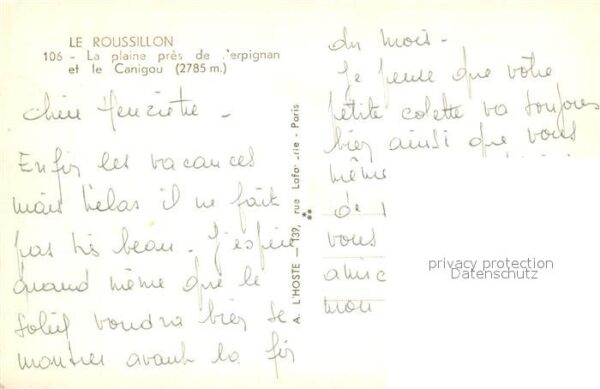 LE ROUSSILLON
106 - La plaine près de Perpignan
et le Canigou (2785 m.)
Chère Henriette -
Enfin les vacances
mais hélas il ne fait
pas très beau. J'espère
quand même que le
soleil voudra bien se
montrer avant la fin
du mois -
Je pense que votre
petite Colette va toujours
bien ainsi que vous
même
de
vous
amic
mon
A. L'HOSTE - 139, rue Lafayette - Paris
privacy protection
Datenschutz